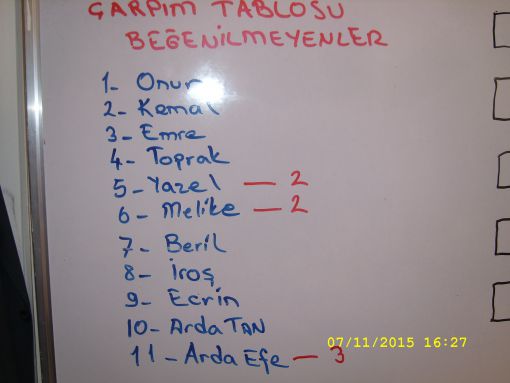 ÇARPIM TABLOSU
BEĞENİLMEYENLER
1- Onur
2- Kemal
3- Emre
4- Toprak
5- Yazel — 2
6- Melike — 2
7- Beril
8- İroş
9- Ecrin
10- Arda TAN
11- Arda Efe — 3
07/11/2015 16:27